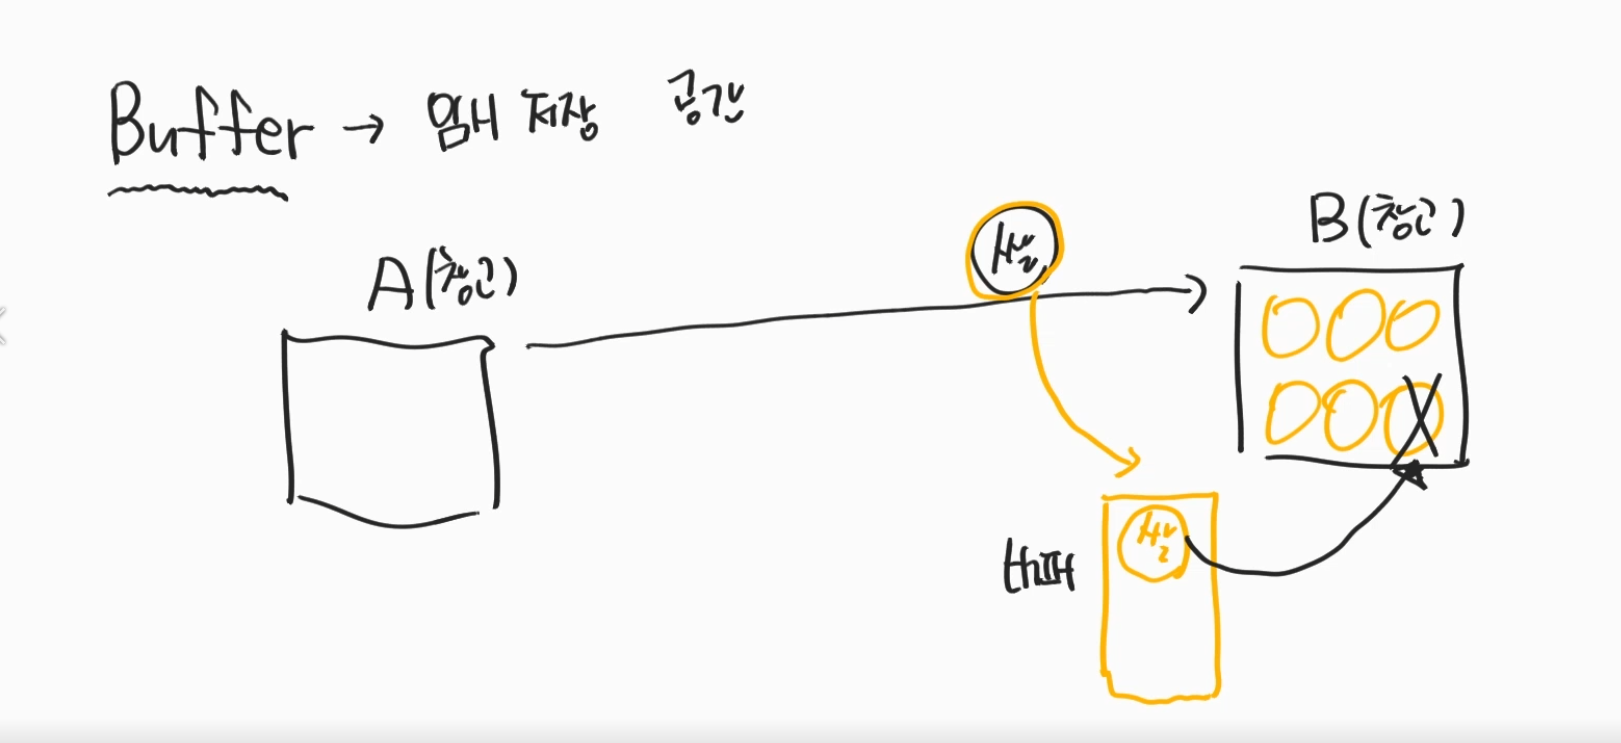 Buffer → 임시 저장 공간
B(창고)
A(창고)
버퍼